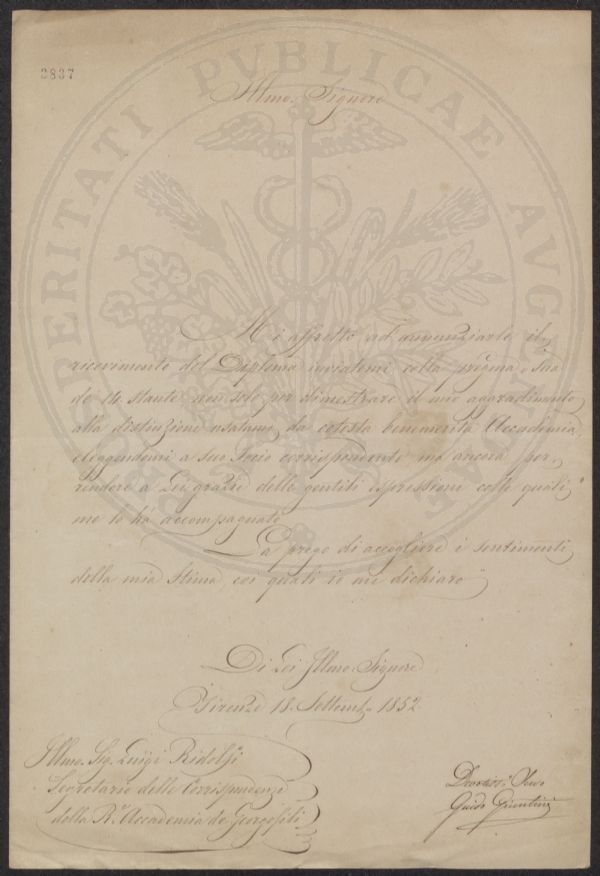 2837
PROSPERITATI PVBLICAE AVGENDAE
Illmo. Signore
Mi affretto ad annunziarle il
ricevimento del Diploma inviatomi colla pregma. Sua
de 14. stante non solo per dimostrare il mio aggradimento
alla distinzione usatami da cotesta benemerita Accademia
eleggendomi a suo Socio corrispondente ma ancora per
rendere a Lei grazie delle gentili espressioni colle quali
me lo ha accompagnato
La prego di accogliere i sentimenti
della mia stima, coi quali io mi dichiaro
Di Lei Illmo. Signore
Firenze 18. Settemb. 1852.
Illmo. Sig. Luigi Ridolfi
Segretario delle Corrispondenze
della R. Accademia de Georgofili
Devotiss. Serv.
Guido Giuntini